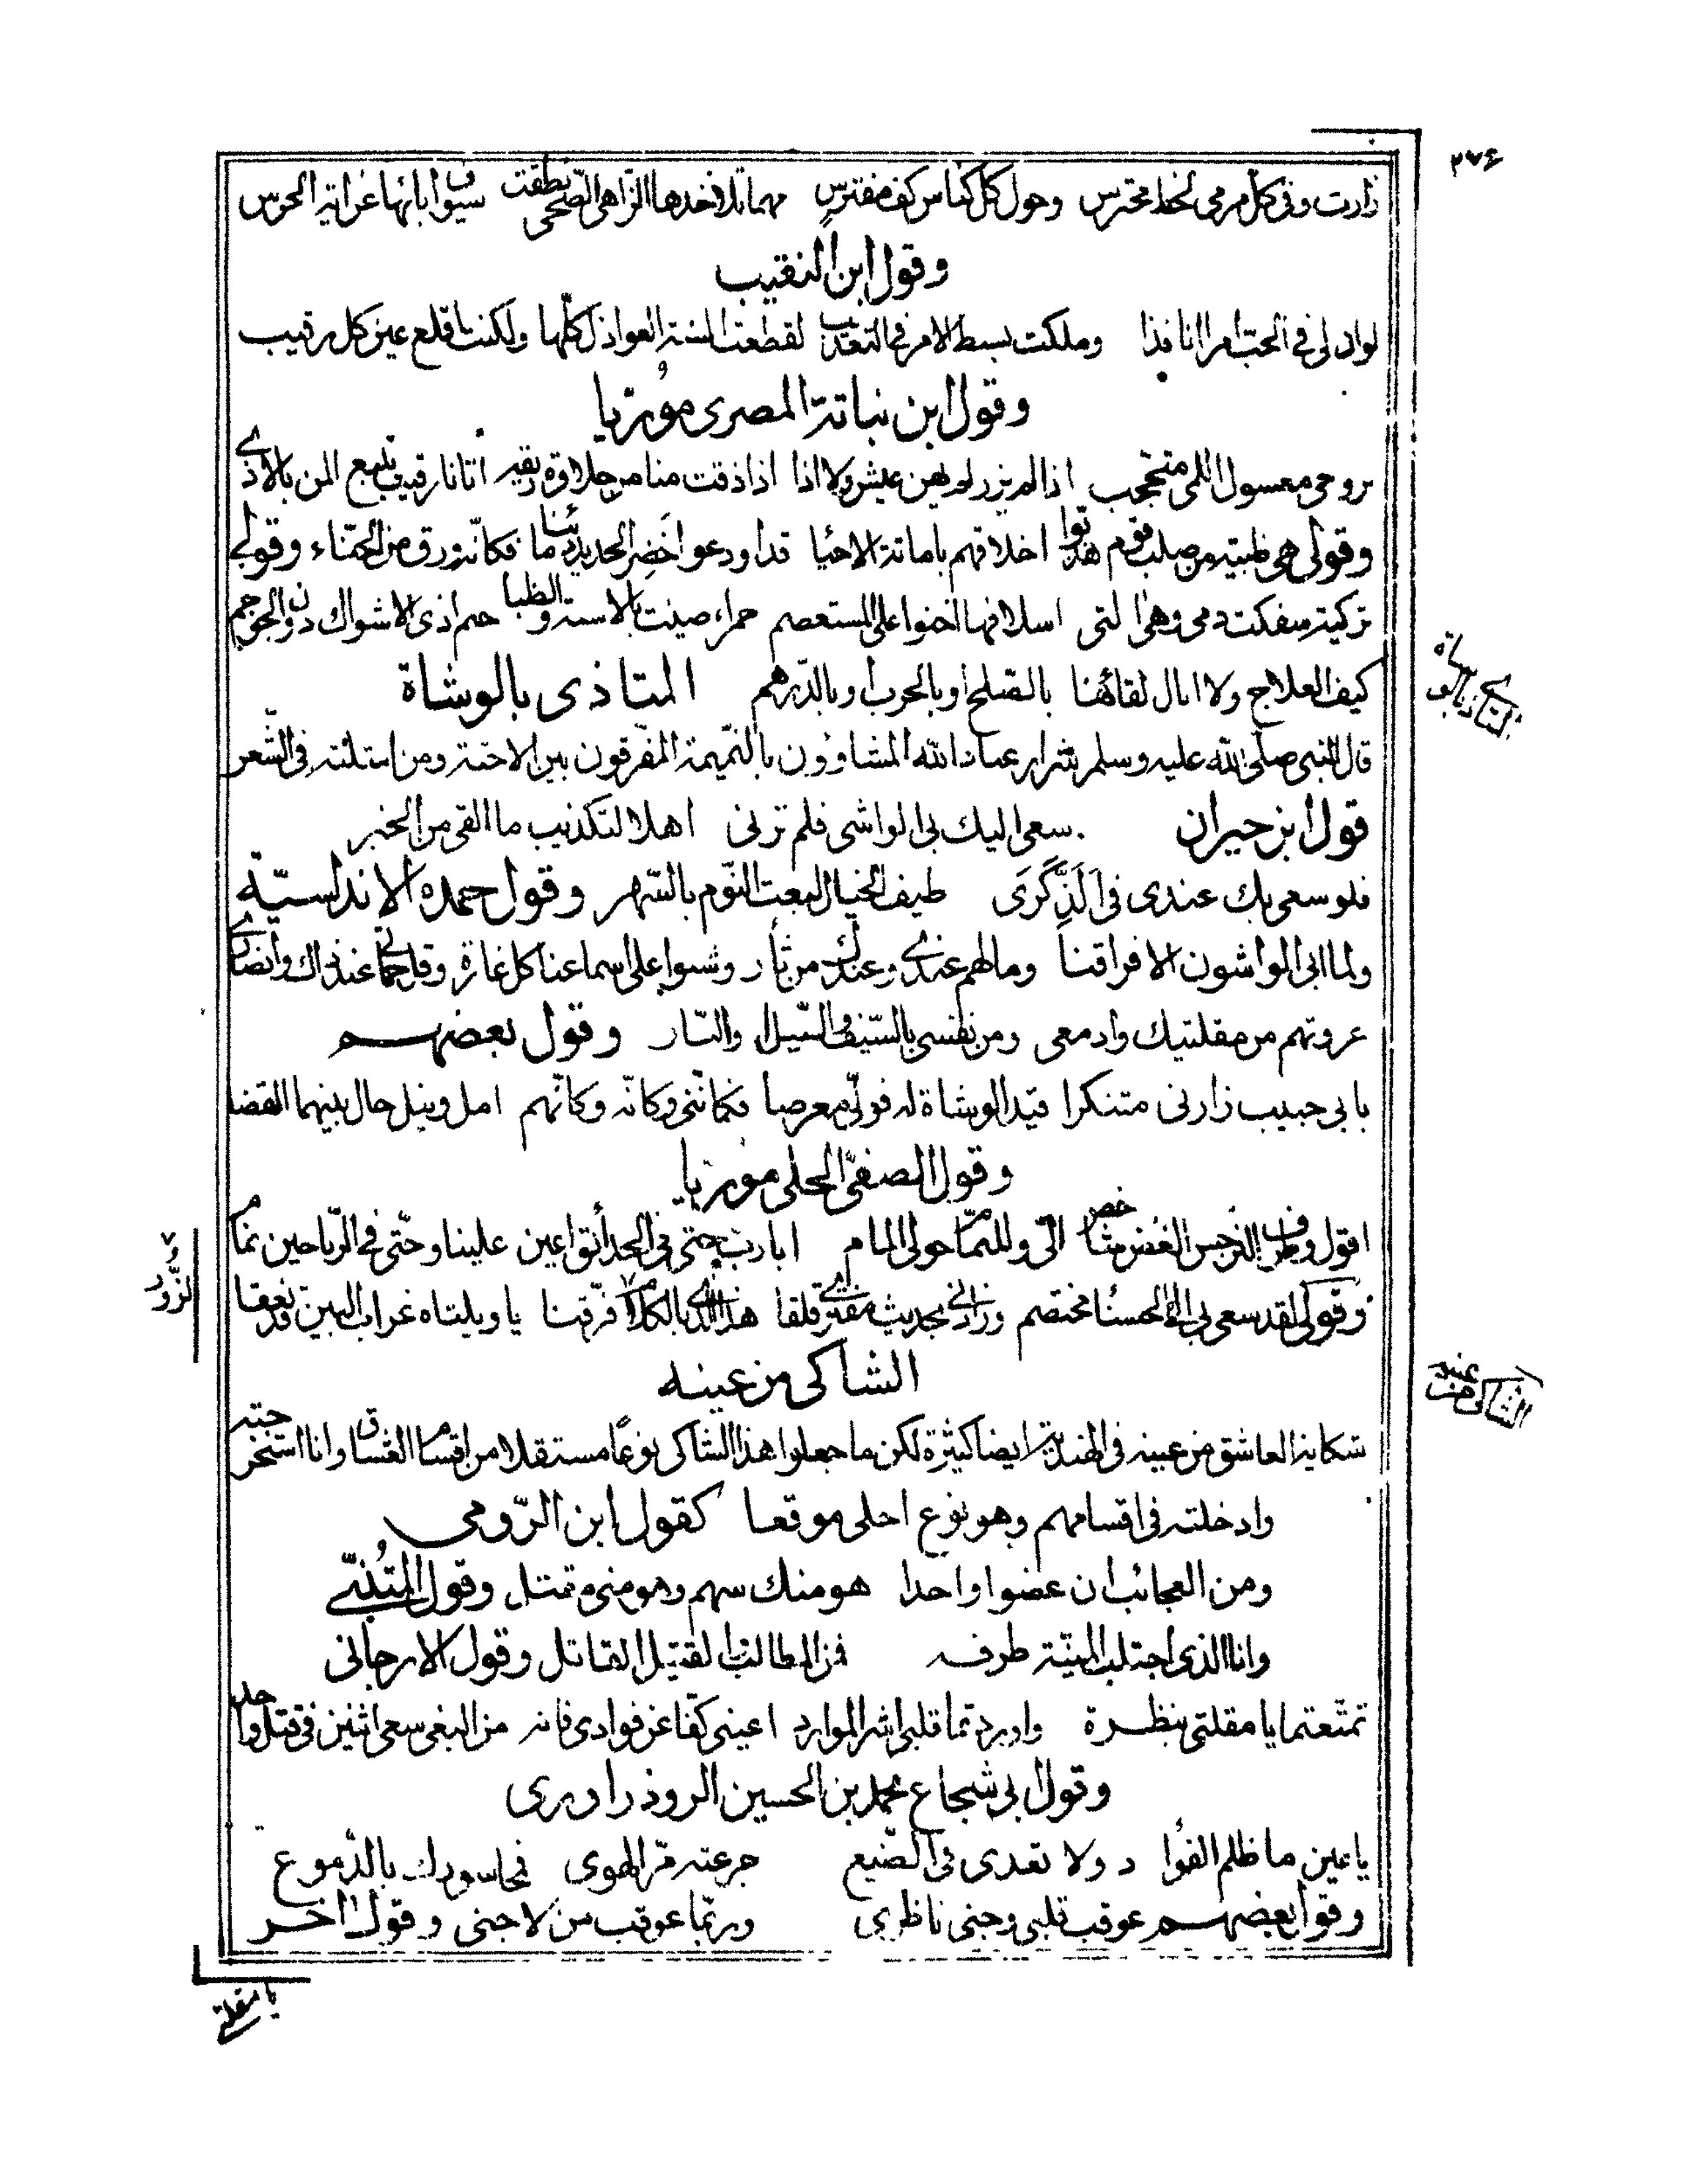 ٢٧٤
زارت وفى كل مرمى لحظ محترس وحول كل كناس كف مفترس مهما تلا خدها الزاهى الضحى نطقت سيوف ابائها عن اية الحرس
وقول ابن النقيب
لو ان لى فى الحب امرا نافذا وملكت بسط الامر فى التعذيب لقطعت السنة العواذل كلها ولكنت اقلع عين كل رقيب
وقول ابن نباتة المصرى مورّيا
بروحى معسول اللمى متحجب اذا لم يزر لم يهن عيش ولا اذا اذا ذقت منا من حلاوة اتانا رقيب يتبع المن بالاذى
وقولى هى ظبية من صلب قوم هذبوا اخلاقهم باماتة الاحيا قد اودعوا خضر الحديد دمائنا فكانه ورق من الحناء وقولى
تركية سفكت دمى وهى التى اسلافها اخنوا على المستعصم حمراء صينت بالاسنة والظبا حم اذى الاشواك دون الحوجم
كيف العلاج ولا انال لقائها بالصلح او بالحرب او بالدرهم المتاذى بالوشاة
قال النبى صلّى الله عليه وسلم شرار عباد الله المشاؤون بالنميمة المفرقون بين الاحبة ومن امثلته فى الشعر
قول ابن حيران سعى اليك بى الواشى فلم ترنى اهلا لتكذيب ما القى من الخبر
فلو سعى بك عندى فى الذّ كرى طيف الخيال لبعت النوم بالسهر وقول حمده الاندلسيّة
ولما ابى الواشون الا فراقنا وما لهم عندى وعندك من ثار وشنوا على اسماعنا كل غارة وقل حماتى عند ذاك وانصارى
غزوتهم من مقلتيك وادمعى ومن نفسى بالسيف والسيل والنار وقول بعضهم
بابى حبيب زارنى متنكرا فبد الوشاة له فولّى معرضا فكاننى وكانه وكانهم امل ونيل حال بينهما القضا
وقول الصفىّ الحلى مورّيا
اقول وطرف النرجس الغض شاخص الىّ وللنمّام حولى المام ايا ربّ حتى فى الحدائق اعين علينا وحتّى فى الرياحين نمام
وقولى لقد سعى بى الى الحسنا مختصم مفترى قلقا هذا الذى بالكلام فرقنا يا ويلتاه غراب البين قد نعقا
الشاكى من عينه
شكاية العاشق من عينه فى الهندية ايضا كثيرة لكن ما جعلوا هذا الشاكى نوعًا مستقلا من اقسام العشاق وانا استخرجته
وادخلته فى اقسامهم وهو نوع احلى موقعا كقول ابن الرّومى
ومن العجائب ان عضوا واحدا هو منك سهم وهو منى مقتل وقول المتنبّى
وانا الذى اجتلب المنيّة طرفه فمن المطالب القتيل القاتل وقول الارجانى
تمتّعتما يا مقلتى بنظرة واوردتما قلبى اشر الموارد اعينى كفّا عن فوادى فانه من البغى سعى اثنين فى قتل واحد
وقول ابى شجاع محمد بن الحسين الروذراورى
يا عين ما ظلم الفؤا د ولا تعدى فى الصّنيع جرعته مرّ الهوى بالدّموع
وقول بعضهم عوقب قلبى وجنى ناظرى وربّما عوقب من لا جنى وقول اخر
المتاذى بالوشاة
الشاكى من عينه
يا مقلتى